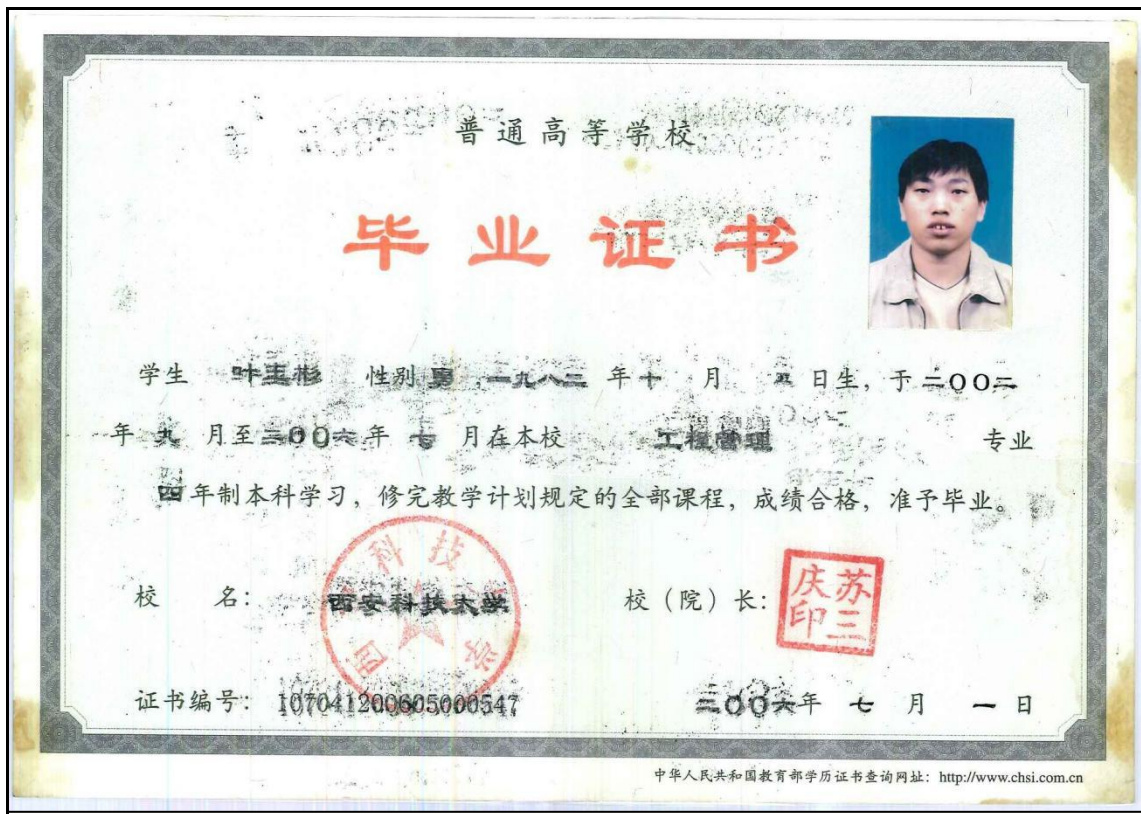 普通高等学校
毕业证书
学生 叶玉彬 性别 男 ,一九八二 年 十 月 五 日生, 于 二〇〇二
年 九 月至 二〇〇六 年 七 月在本校 工程管理 专业
四 年制本科学习, 修完教学计划规定的全部课程, 成绩合格, 准予毕业。
校 名: 西安科技大学 校 (院) 长: 苏三庆印
证书编号: 107041200605000547 二〇〇六年 七 月 一 日
中华人民共和国教育部学历证书查询网址: http://www.chsi.com.cn